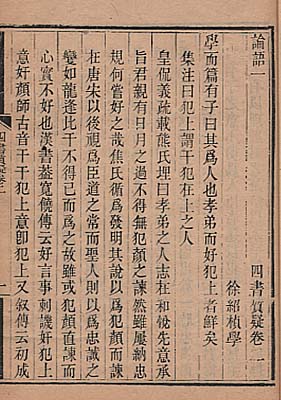 四書質疑卷一
徐紹楨學
論語一
學而篇有子曰其爲人也孝弟而好犯上者鮮矣
集注曰犯上謂干犯在上之人
皇侃義疏載熊氏埋曰孝弟之人志在和悅先意承
旨君親有日月之過不得無犯顏之諫然雖屢納忠
規何嘗好之哉焦氏循爲發明其說以爲犯顏而諫
在唐宋以後視爲臣道之常而聖人則以爲忠誠之
變如龍逢比干不得已而爲之故雖或犯顏直諫而
心實不好也漢書蓋寬饒傳云好言事刺譏奸犯上
意奸顏師古音干干犯上意卽犯上又敘傳云初成
四書質疑卷一
一